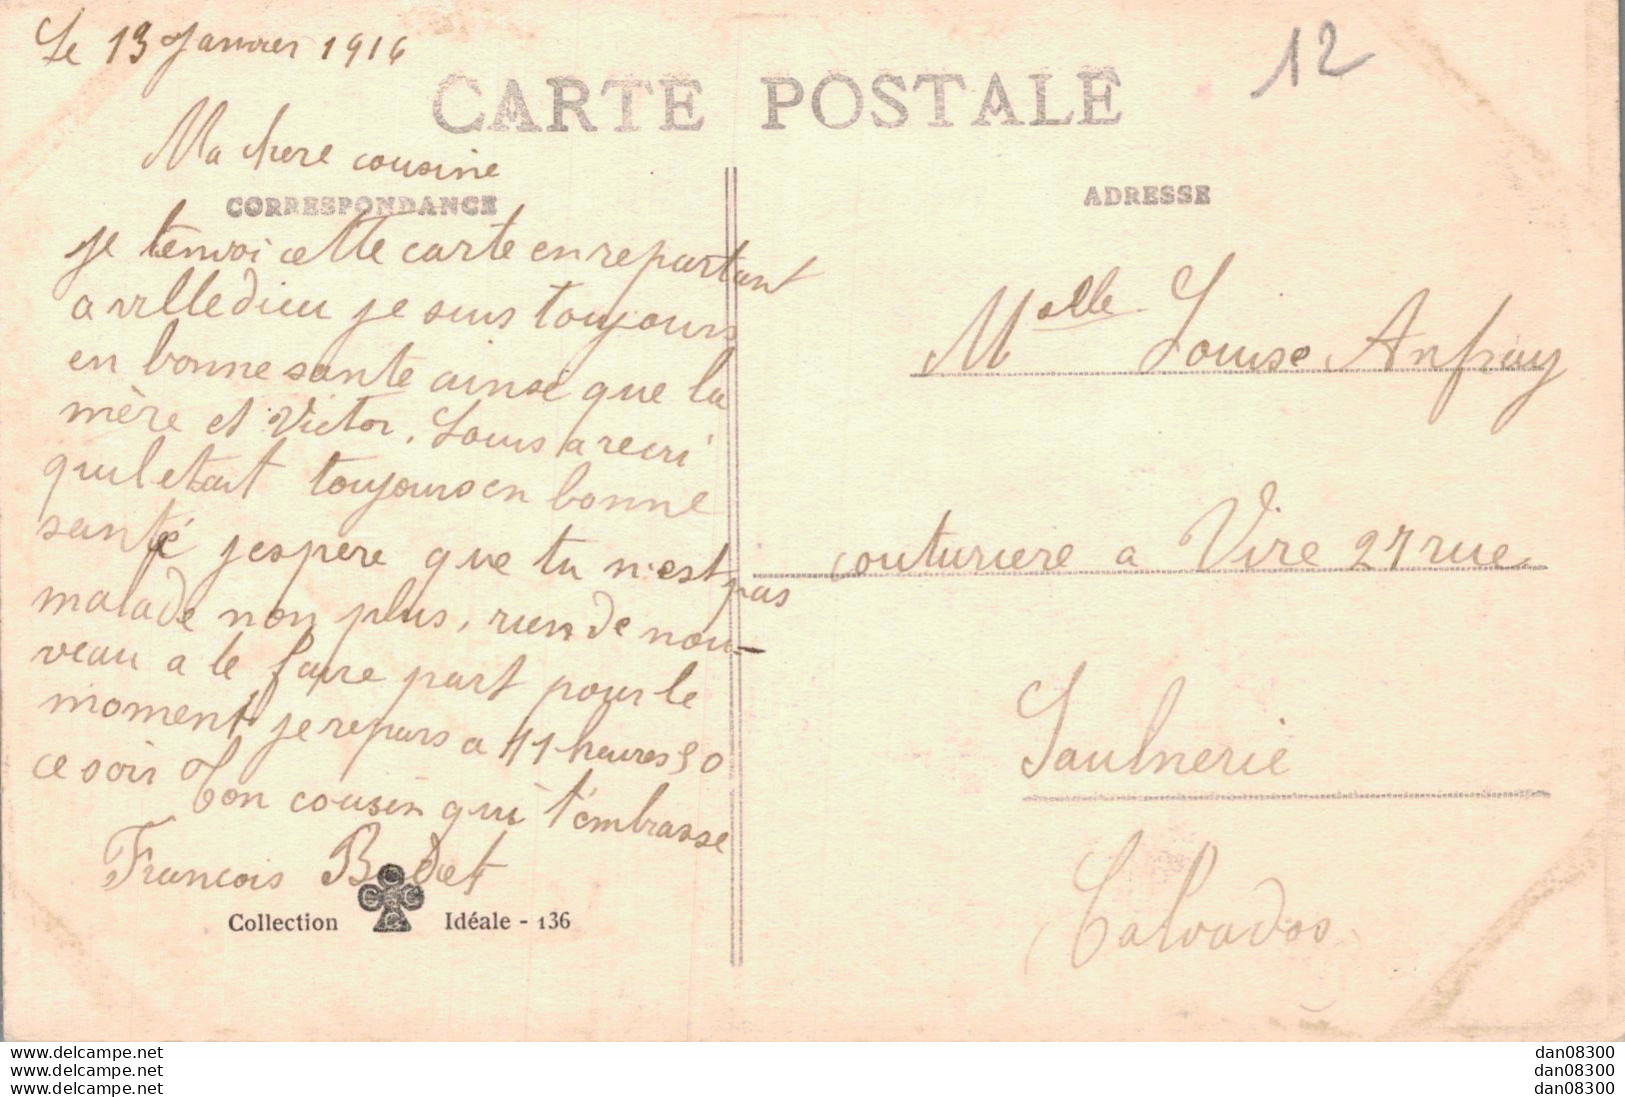 Le 13 Janvier 1916
12
CARTE POSTALE
Ma chere cousine
CORRESPONDANCE
je tenvoi cette carte en repartant
a villedieu je suis toujours
en bonne sante ainsi que la
mère et Victor. Louis a recri
quil etait toujours en bonne
santé jespere que tu n'est pas
malade non plus, rien de nou-
veau a te faire part pour le
moment je repars a 11 heures 30
ce soir Ton cousin qui t'embrasse
Francois Bodet
Collection CCC Idéale - 136
ADRESSE
Melle Louise Anfray
couturiere a Vire 27 rue
Saulnerie
Calvados
www.delcampe.net
www.delcampe.net
www.delcampe.net
dan08300
dan08300
dan08300